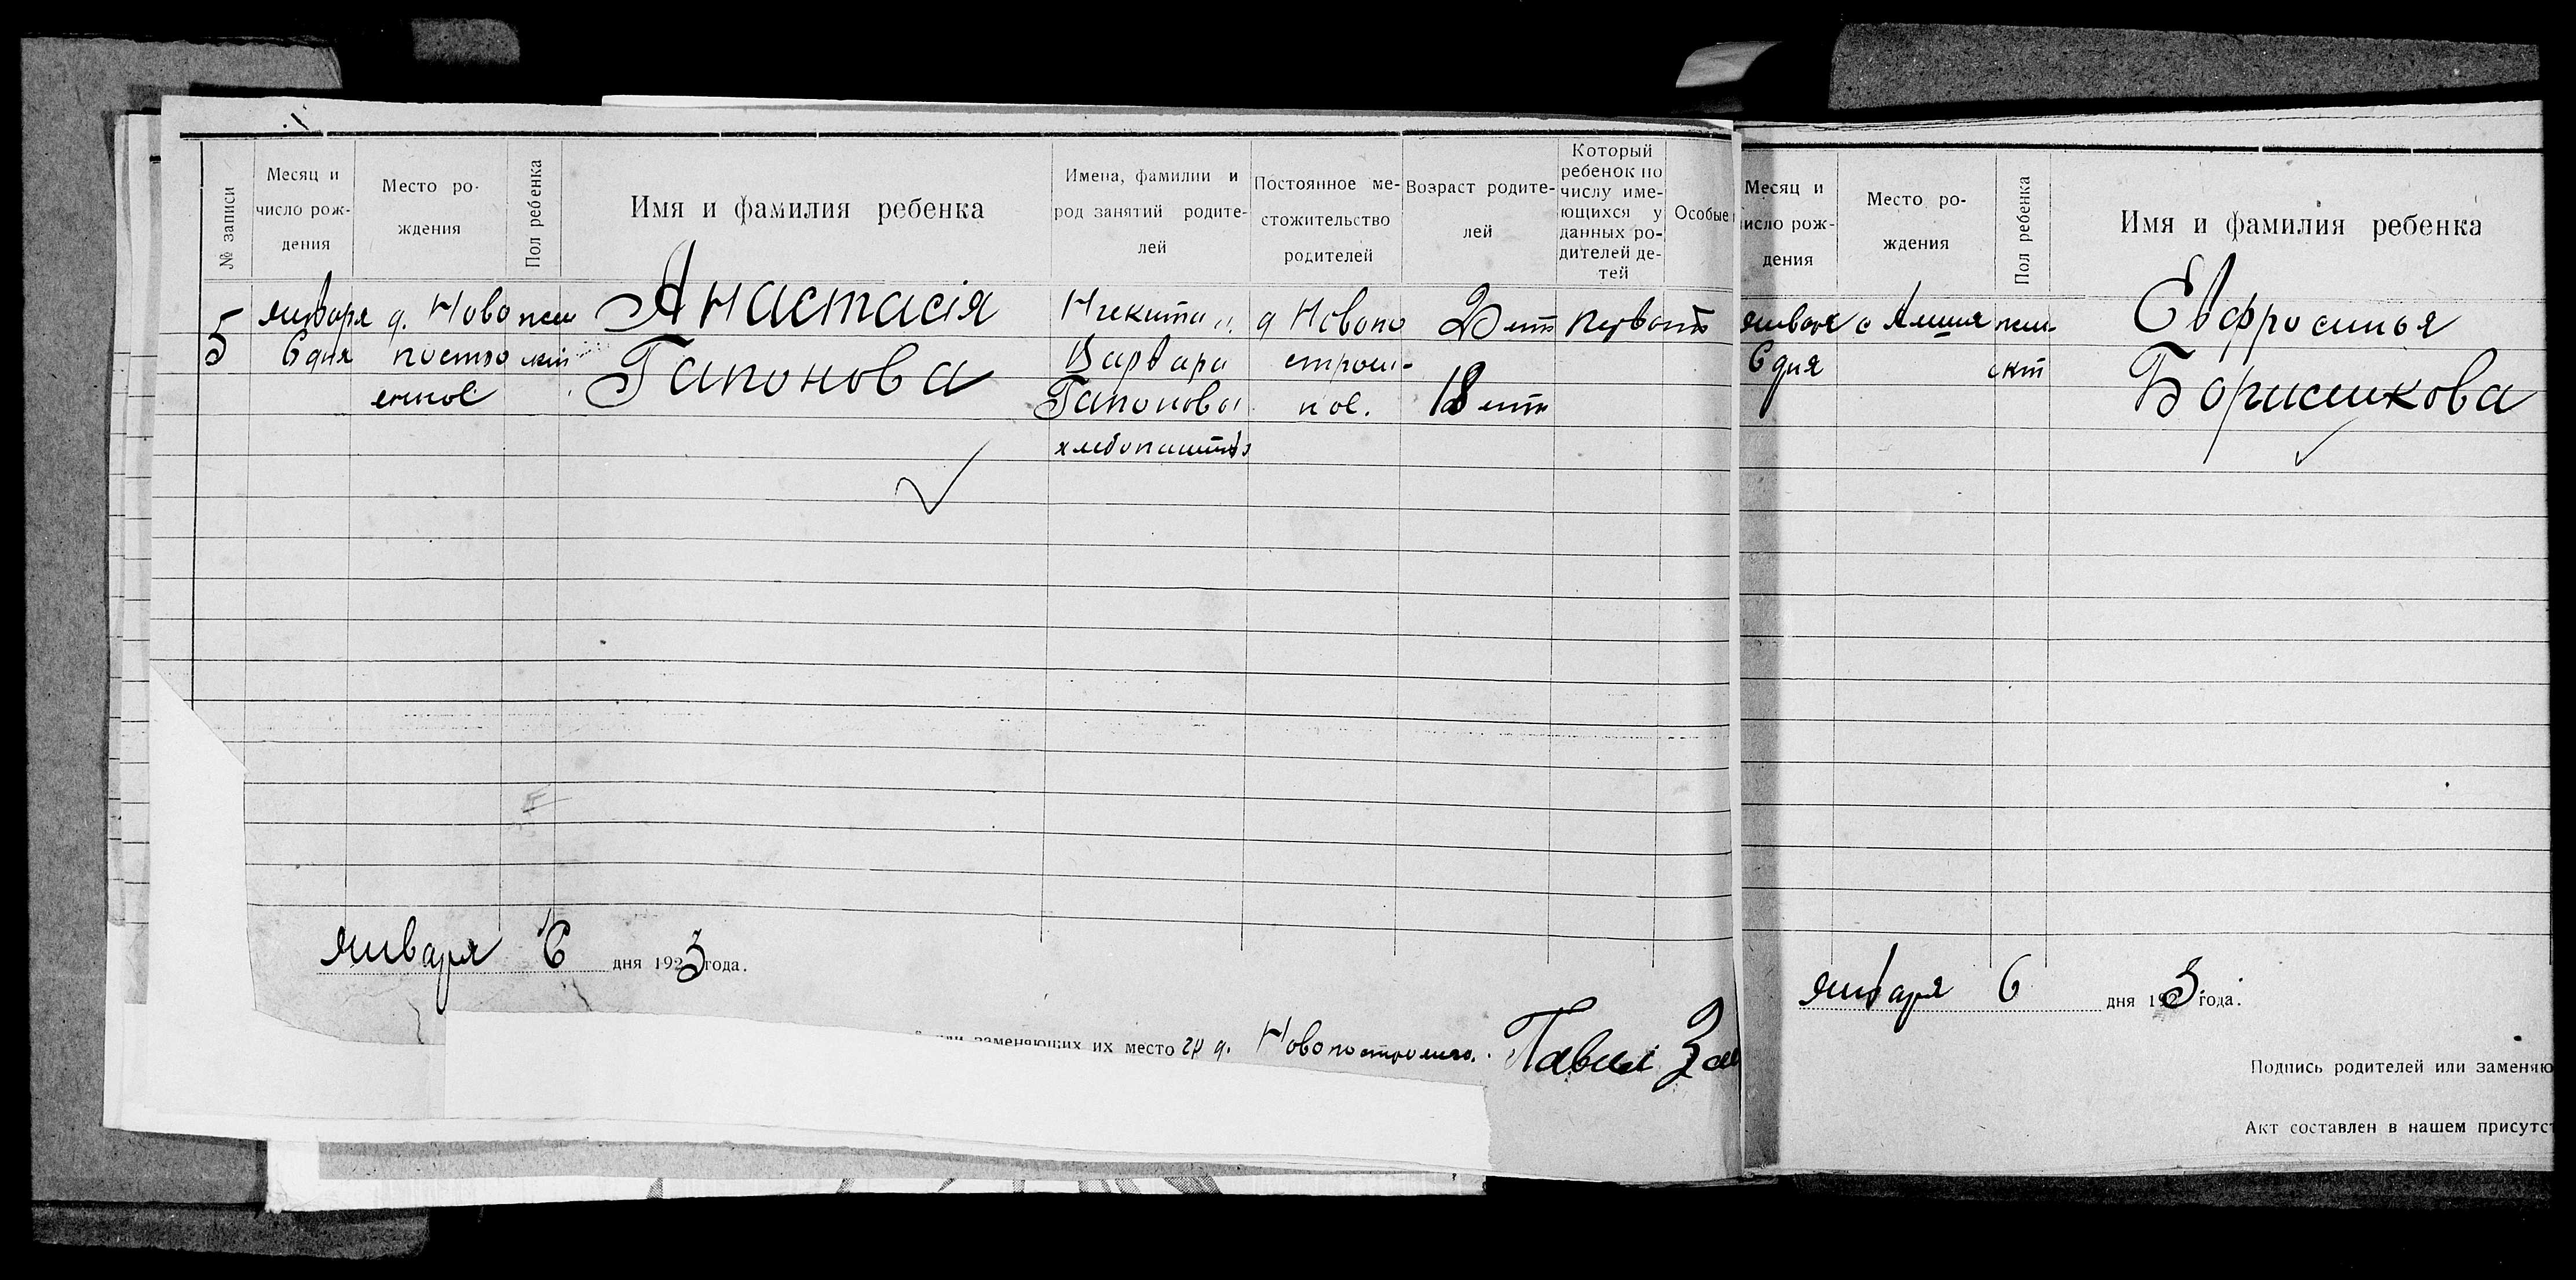 № записи
Месяц и
число рож-
дения
Место ро-
ждения
Пол ребенка
Имя и фамилия ребенка
Имена, фамилии и
род занятий родите-
лей
Постоянное ме-
стожительство
родителей
Возраст родите-
лей
Который
ребенок по
числу име-
ющихся у
данных ро-
дителей де-
тей
Особые
5
января
6 дня
д. Ново
постро
енное
жен
скій
Анастасія
Гапонова
Никита и
Варвара
Гапоновы
хлебопашты
д Новопо
строен-
ное.
20 лет
18 лет
первый
января 6 дня 1923 года.
или заменяющих их место гр д. Новопостроено. Павел
Месяц и
число рож-
дения
Место ро-
ждения
Пол ребенка
Имя и фамилия ребенка
января
6 дня
с
жен
скт
Евфросинья
Борисикова
января 6 дня 1923 года.
Подпись родителей или заменяю
Акт составлен в нашем присутст